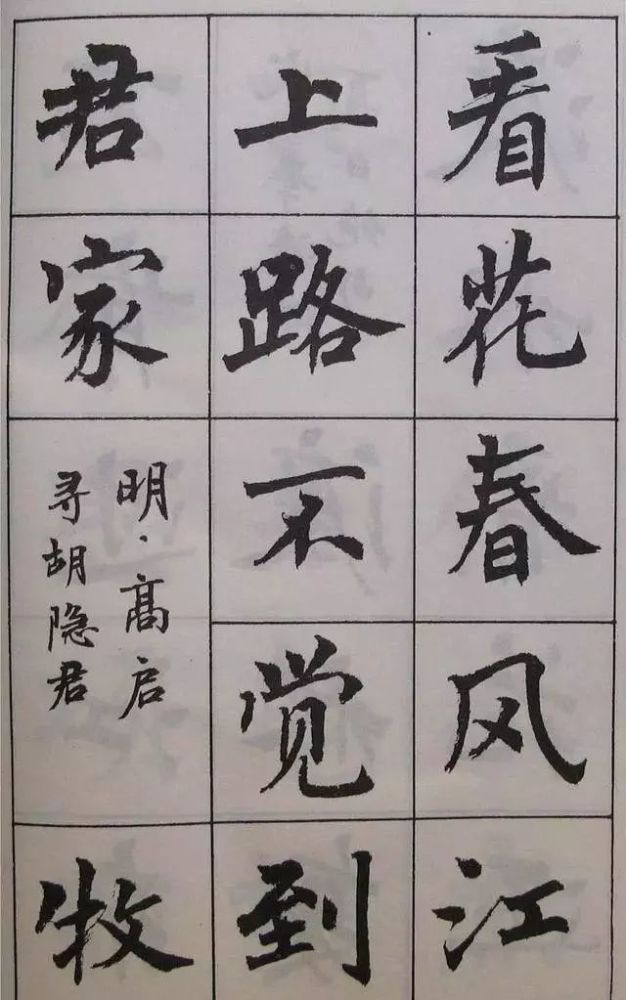 看花春风江
上路不觉到
君家
明·高启
寻胡隐君
牧